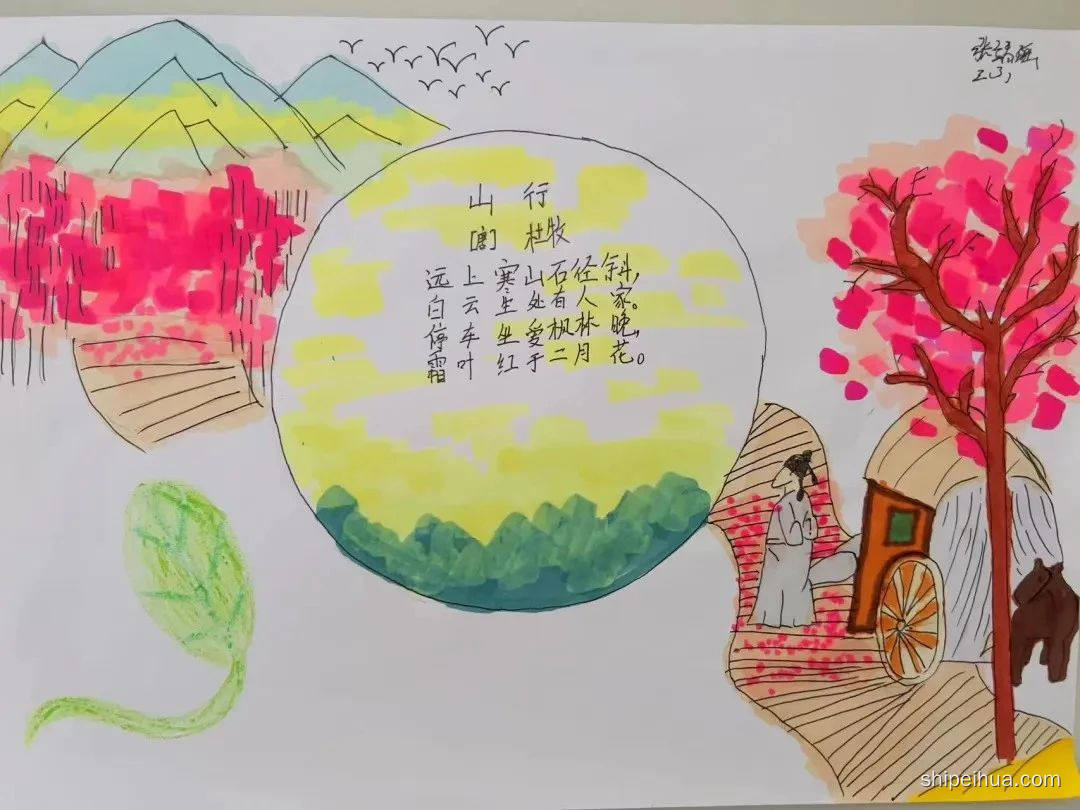 山行
[唐] 杜牧
远上寒山石径斜,
白云生处有人家。
停车坐爱枫林晚,
霜叶红于二月花。
2.3,
shipeihua.com